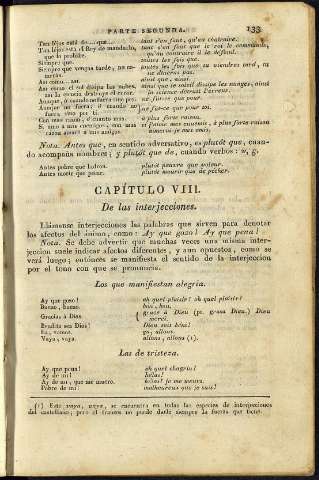 PARTE SEGUNDA. 133
Tan lejos está de...que. tant s'en faut, qu'au contraire.
Tan lejos está el Rey de mandarlo, tant s'en faut que le roi le commande,
que lo prohibe. qu'au contraire il le défend.
Siempre que. toutes les fois que.
Siempre que venga tarde, no comerás. toutes les fois que tu viendras tard, tu
ne dîneras pas.
Así como...así. ainsi que...ainsi.
Así como el sol disipa las nubes, ainsi que le soleil dissipe les nuages, ainsi
así la ciencia destruye el error. la science détruit l'erreur.
Aunque, ó cuando no fuera sino por. ne fût-ce que pour.
Aunque no fuera; ó cuando no ne fût-ce que pour toi.
fuera sino por tí.
Con mas razon, ó cuanto mas. à plus forte raison.
Si amo á mis enemigos, con mas si j'aime mes ennemis, à plus forte raison
razon amaré á mis amigos. aimerai-je mes amis.
Nota. Antes que, en sentido adversativo, es plutôt que, cuando
acompaña nombres; y plutôt que de, cuando verbos: v. g.
Antes pobre que ladron. plutôt pauvre que voleur.
Antes morir que pecar. plutôt mourir que de pécher.
CAPÍTULO VIII.
De las interjecciones.
Llámanse interjecciones las palabras que sirven para denotar
los afectos del ánimo, como: Ay que gozo! Ay que pena!
Nota. Se debe advertir que muchas veces una misma interjeccion
suele indicar afectos diferentes, y aun opuestos, como se
verá luego; entonces se manifiesta el sentido de la interjeccion
por el tono con que se pronuncia.
Los que manifiestan alegria.
Ay que gozo! ah quel plaisir! oh quel plaisir!
Bueno, bueno. bon, bon.
Gracias á Dios. { grace à Dieu (pr. grasa Dieu.) Dieu
merci.
Bendito sea Dios! Dieu soit béni!
Ea, vamos. ça, allons.
Vaya, vaya. allons, allons (1).
Las de tristeza.
Ay que pena! ah quel chagrin!
Ay de mi! hélas!
Ay de mi, que me muero. hélas! je me meurs.
Pobre de mi! malheureux que je suis!
(1) Este vaya, vaya, se encuentra en todas las especies de interjecciones
del castellano; pero el frances no puede darle siempre la fuerza que tiene.